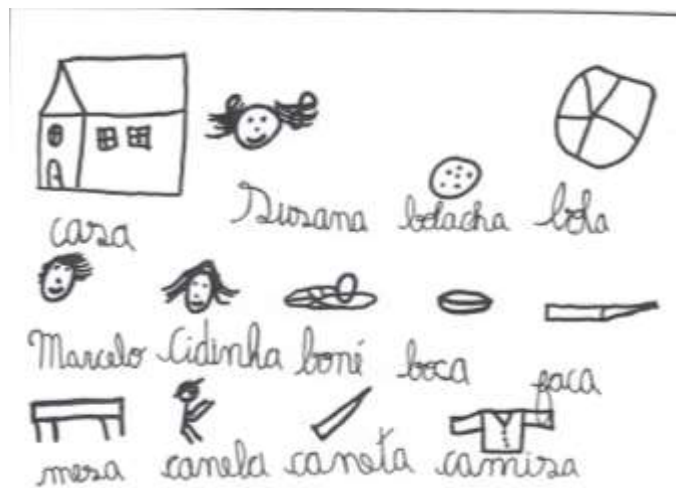 casa Susana bolacha bola
Marcelo Cidinha boné boca faca
mesa canela caneta camisa